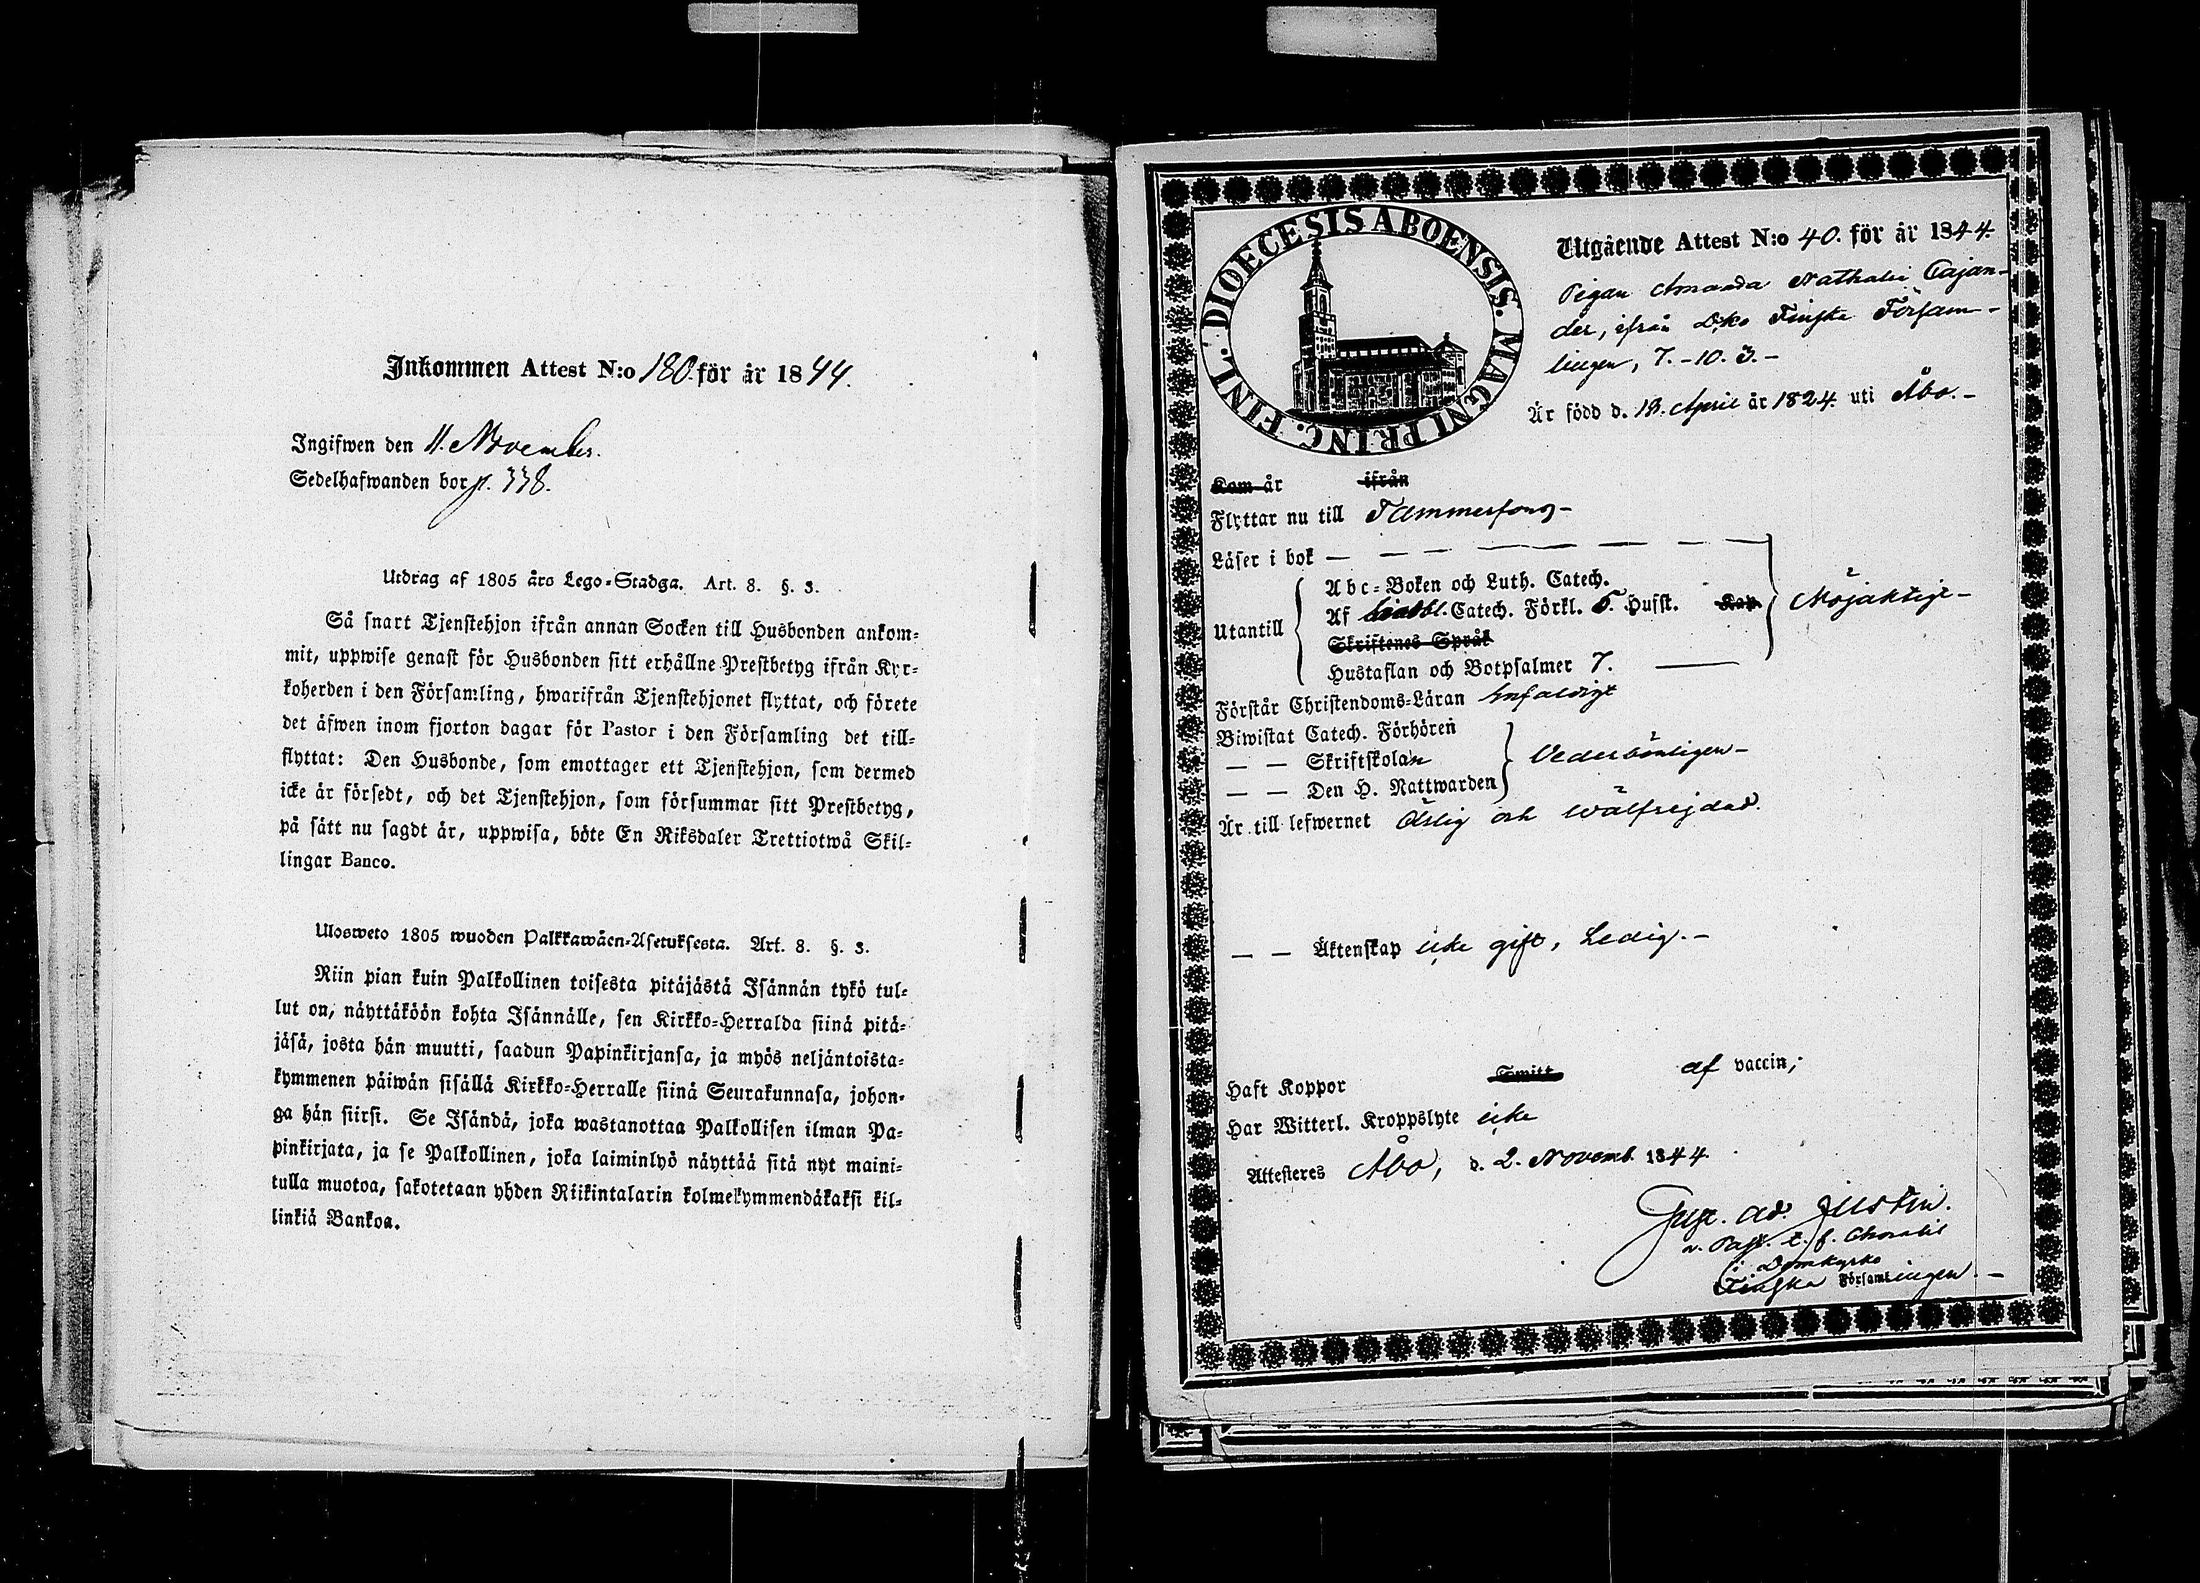 Inkommen Attest N:o 180. för år 1844.
Ingifwen den 11. November.
Sedelhafwanden bor p. 338.
Utdrag af 1805 års Lego-Stadga. Art. 8. §. 3.
Så snart Tjenstehjon ifrån annan Socken till Husbonden ankom-
mit, uppwise genast för Husbonden sitt erhållne Prestbetyg ifrån Kyr-
koherden i den Församling, hwarifrån Tjenstehjonet flyttat, och förete
det äfwen inom fjorton dagar för Pastor i den Församling det till-
flyttat: Den Husbonde, som emottager ett Tjenstehjon, som dermed
icke är försedt, och det Tjenstehjon, som försummar sitt Prestbetyg,
på sätt nu sagdt är, uppwisa, böte En Riksdaler Trettiotwå Skil-
lingar Banco.
Ulosweto 1805 wuoden Palkkawäen-Asetuksesta. Art. 8. §. 3.
Niin pian kuin Palkollinen toisesta pitäjästä Isännän tykö tul-
lut on, näyttäköön kohta Isännälle, sen Kirkko-Herralda siinä pitä-
jäsä, josta hän muutti, saadun Papinkirjansa, ja myös neljäntoista-
kymmenen päiwän sisällä Kirkko-Herralle siinä Seurakunnasa, johon-
ga hän siirsi. Se Isändä, joka wastanottaa Palkollisen ilman Pa-
pinkirjata, ja se Palkollinen, joka laiminlyö näyttää sitä nyt maini-
tulla muotoa, sakotetaan yhden Riikintalarin kolmekymmendäkaksi kil-
linkiä Bankoa.
DIOECESIS ABOENSIS. MAGNI PRINC. FINL.
Utgående Attest N:o 40. för år 1844.
Pigan Amanda Nathalie Cajan-
der, ifrån D:ko Finska Försam-
lingen, 7.-10. 3.-
Är född d. 18. April år 1824. uti Åbo.-
Kom år ifrån
Flyttar nu till Tammerfors-
Läser i bok — — — — — — —
Abc-Boken och Luth. Catech.
Utantill
Af Catech. Förkl. 5. Hufst. Kap. Nöjaktigt-
Skriftenes Språk
Hustaflan och Botpsalmer 7. —
Förstår Christendoms-Läran enfaldigt
Biwistat Catech. Förhören
— — Skriftskolan Vederbörligen-
— — Den H. Nattwarden
Är till lefwernet ärlig och wälfrejdad.
— — Äktenskap icke gift, Ledig.-
Haft Koppor Smitt af vaccin;
Har Witterl. Kroppslyte icke
Attesteres Åbo, d. 2. Novemb. 1844.
ad. Justin.
v. Past.
i Domkyrko
Finska Församlingen.-